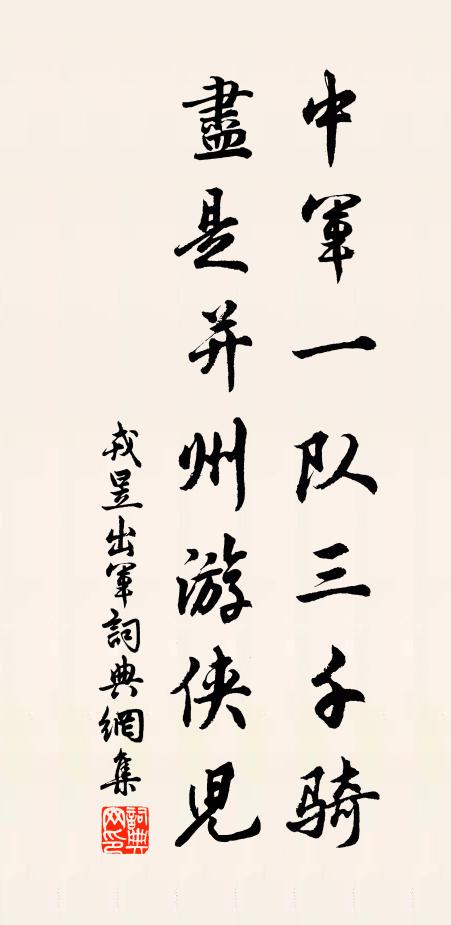 中軍一队三千骑
盡是并州游侠兒
戎昱出軍詞典網集
詞典网印